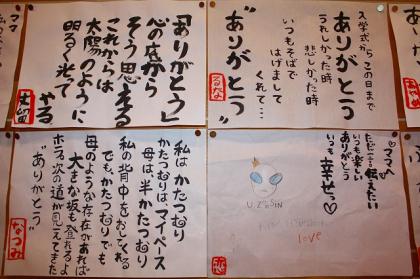 入学式から この日まで
ありがとう
うれしかった時
悲しかった時
いつもそばで
はげまして
くれて…
ありがとう
るな
「ありがとう」
心の底から
そう思える
これからは
太陽のように
明るく光って
やる
ママへ
ただ一言伝えたい
いつも楽しい
ありがとう
いつも幸せっ♡
U.Z*PIN
love
恋
私はかたつむり
かたつむりは、マイペース
母は、半かたつむり
私の背中をおしてくれる
でも、かたつむりでも
母のような存在があれば
大きな坂も登れるよ
ホラ、次の道が見えてきた
“ありがとう”
なつみ
ママ